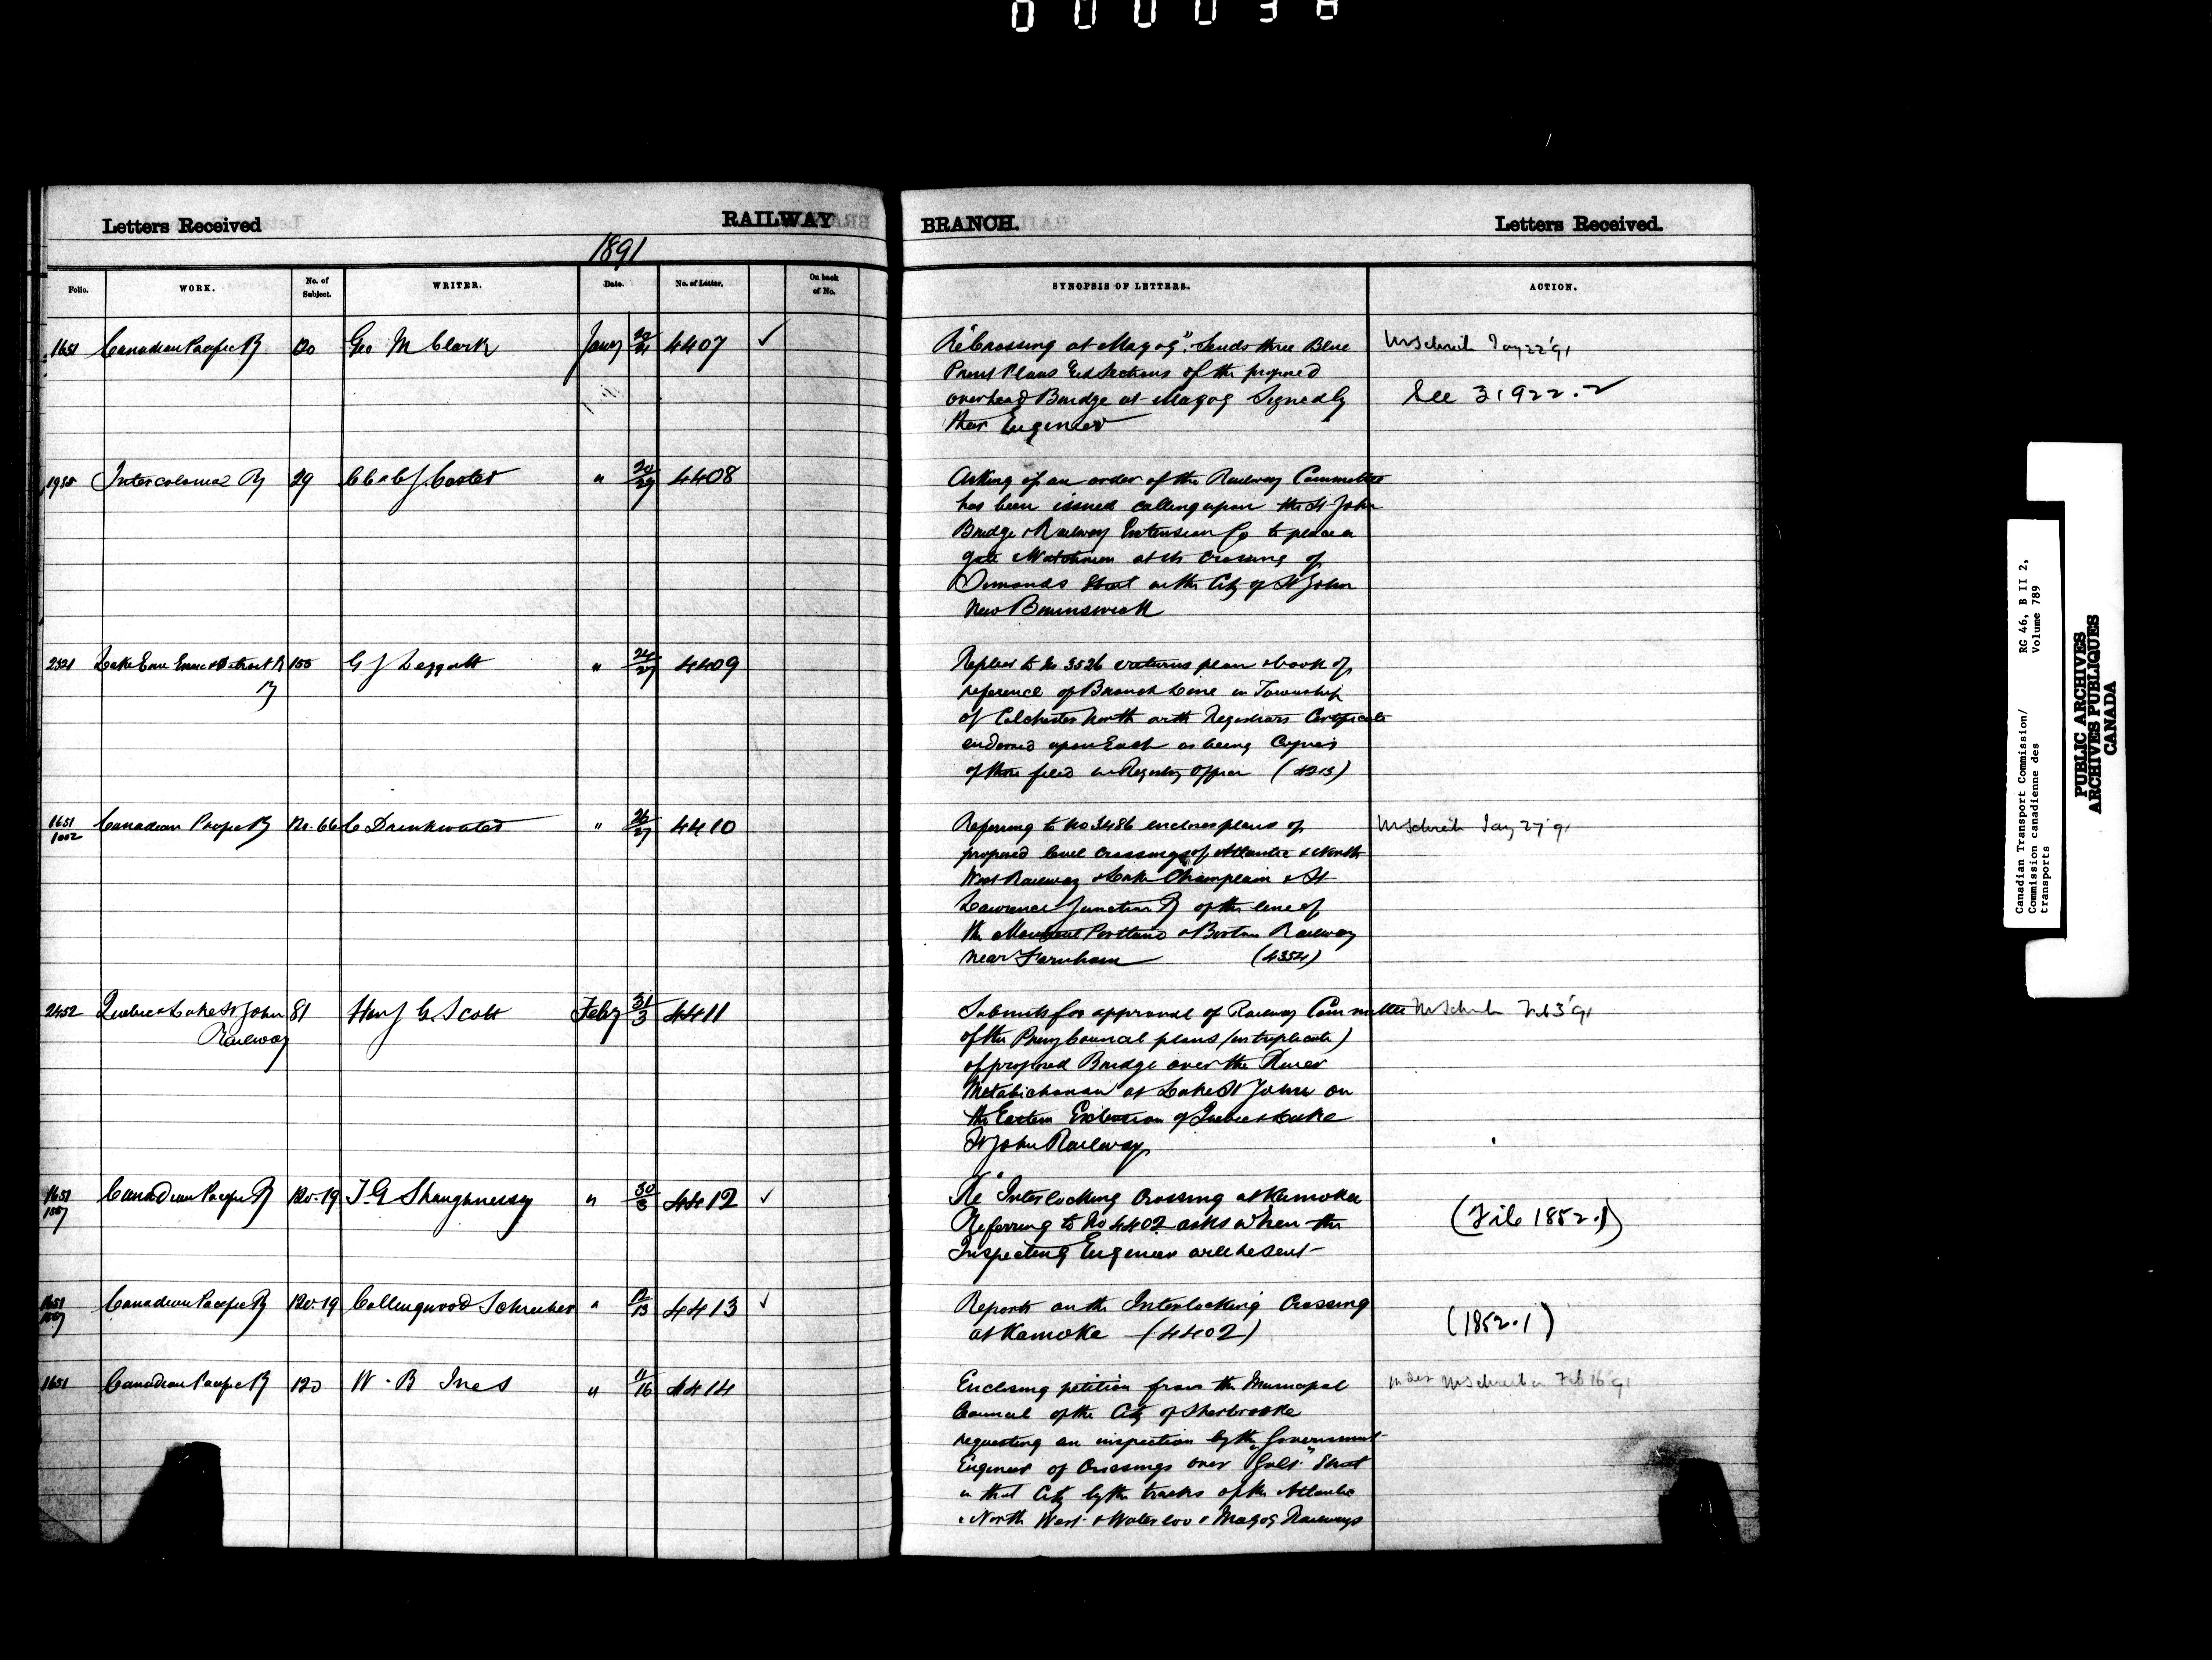 000038
Letters Received
RAILWAY
BRANCH.
Letters Received.
1891
Folio.
WORK.
No. of Subject.
WRITER.
Date.
No. of Letter.
On back of No.
SYNOPSIS OF LETTERS.
ACTION.
1651 Canadian Pacific Ry 120 Geo M Clark Jany 4407 ✓
Re "Crossing at Magog". Sends three Blue
Print Plans and Sections of the proposed
overhead Bridge at Magog Signed by
their Engineer
Mr Schreib Jany 22 '91
See 31922.2
Intercolonial Ry 29 Coster " 4408
Asking if an order of the Railway Committee
has been issued calling upon the St John
Bridge & Railway Extension Co to place a
gate & Watchman at the crossing of
Simonds Street in the City of St John
New Brunswick
Lake Erie Essex & Detroit R Ry 155 G J Leggatt " 24/27 4409
Replies to No 3526 returns plan & book of
reference of Branch Line in Township
of Colchester North with Registrars Certificate
endorsed upon Each as being Copies
of those filed in Registry Office (4213)
1651 1002 Canadian Pacific Ry 120.66 C Drinkwater " 26/27 4410
Referring to No 3486 encloses plans of
proposed level crossings of Atlantic & North
West Railway & Lake Champlain & St
Lawrence Junction Ry of the line of
the Montreal Portland & Boston Railway
near Farnham (4354)
Mr Schreib Jany 27 '91
2452 Quebec & Lake St John Railway 81 J G Scott Feby 31/3 4411
Submits for approval of Railway Committee
of the Privy Council plans (in triplicate)
of proposed Bridge over the River
Metabichouan at Lake St John on
the Eastern Extension of Quebec & Lake
St John Railway
Mr Schreib Feb 3 '91
1651 Canadian Pacific Ry 120.19 T G Shaughnessy " 30/3 4412 ✓
Re "Interlocking Crossing at Komoka
Referring to No 4402 asks when the
Inspecting Engineer will be sent
(File 1852.1)
1651 Canadian Pacific Ry 120.19 Collingwood Schreiber " 12/13 4413 ✓
Reports on the Interlocking Crossing
at Komoka (4402)
(1852.1)
1651 Canadian Pacific Ry 120 W. B Ives " 11/16 4414
Enclosing petition from the Municipal
Council of the City of Sherbrooke
requesting an inspection by the Government
Engineer of Crossings over "Galt" Street
in that City by the tracks of the Atlantic
& North West & Waterloo & Magog Railways
Mr Schreiber Feb 16 '91
Canadian Transport Commission/
Commission canadienne des
transports
RG 46, B II 2,
Volume 789
PUBLIC ARCHIVES
ARCHIVES PUBLIQUES
CANADA